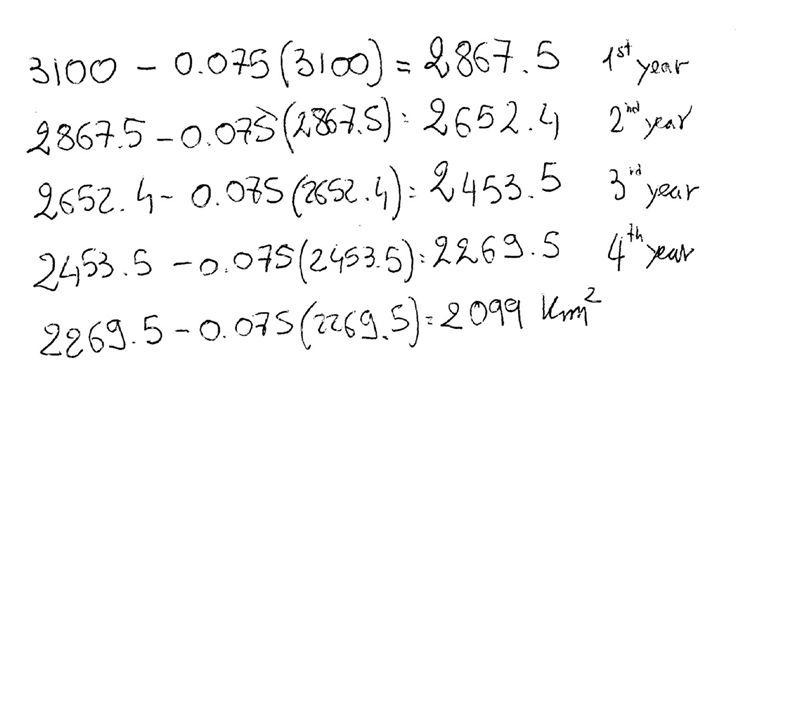 3100 - 0.075(3100) = 2867.5 1st year
2867.5 - 0.075(2867.5) = 2652.4 2nd year
2652.4 - 0.075(2652.4) = 2453.5 3rd year
2453.5 - 0.075(2453.5) = 2269.5 4th year
2269.5 - 0.075(2269.5) = 2099 Km²